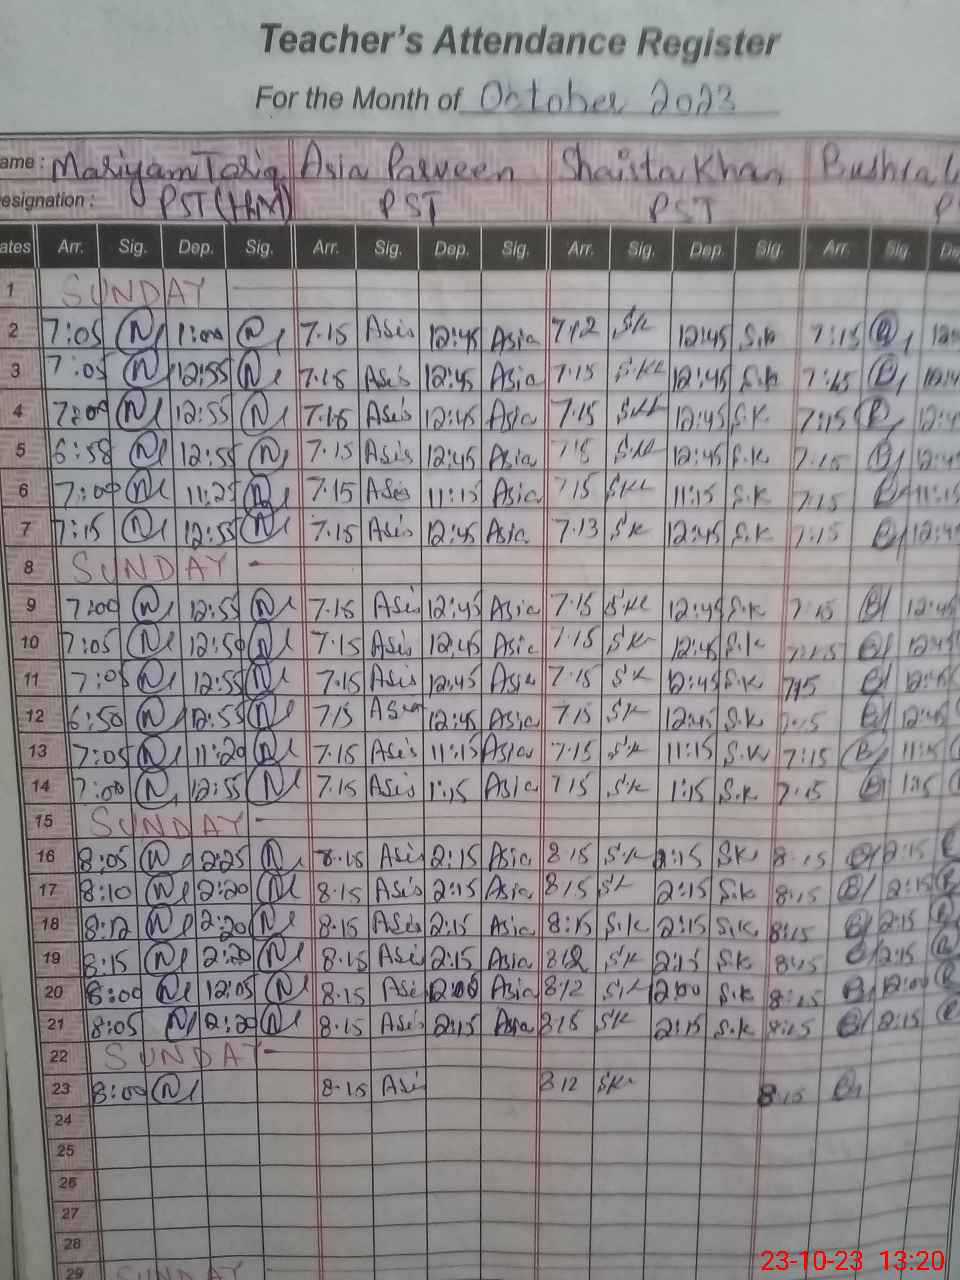 Teacher's Attendance Register
For the Month of October 2023
ame : Mariyam Tariq Asia Parveen Shaista Khan Bushra
esignation : PST (HM) PST PST P
ates Arr. Sig. Dep. Sig. Arr. Sig. Dep. Sig. Arr. Sig. Dep. Sig. Arr. Sig De
1 SUNDAY
2 7:05 1:00 7.15 Asis 12:45 Asia 7:12 SK 12:45 S.k 7:15 12:
3 7:05 12:55 7.15 Asis 12:45 Asia 7.15 12:45 S.k 7:15 12:4
4 7:00 12:55 7.15 Asis 12:45 Asia 7.15 12:45 S.K. 7:15 12:4
5 6:58 12:55 7.15 Asis 12:45 Asia 12:45 S.K 7:15 12:4
6 7:00 11:25 7.15 Asis 11:15 Asia 715 11:15 S.K 7:15 11:15
7 7:15 12:55 7.15 Asis 12:45 Asia 7.13 SK 12:45 S.K 7:15 12:45
8 SUNDAY
9 7:00 12:55 7.15 Asis 12:45 Asia 7.15 12:45 S.K 7:15 12:45
10 7:05 12:50 7.15 Asis 12:45 Asia 7.15 SK 12:45 S.k 7:15 12:45
11 7:05 12:55 7.15 Asis 12:45 Asia 7.15 SK 12:45 S.K 715 12:45
12 6:50 12:55 7.15 Asia 12:45 Asia 7.15 SK 12:45 S.K 7:15 12:45
13 7:05 11:20 7.15 Asis 11:15 Asia 7.15 SK 11:15 S.K 7:15 11:15
14 7:00 12:55 7.15 Asis 1:15 Asia 7.15 SK 1:15 S.K 7:15 1:15
15 SUNDAY
16 8:05 2:25 8.15 Asis 2:15 Asia 8.15 S.K 2:15 SK 8:15 2:15
17 8:10 2:20 8.15 Asis 2:15 Asia 8.15 SK 2:15 S.K 8:15 2:15
18 8:12 2:20 8.15 Asis 2:15 Asia 8:15 S.K 2:15 S.K. 8:15 2:15
19 8:15 2:20 8.15 Asis 2:15 Asia 812 SK 2:15 S.K 8:15 2:15
20 8:00 12:05 8.15 Asis 12:00 Asia 8.12 SK 12:00 S.K 8:15 12:00
21 8:05 2:20 8.15 Asis 2:15 Asia 8.15 SK 2:15 S.K 8:15 2:15
22 SUNDAY
23 8:00 8.15 Asi 8.12 SK. 8:15
24
25
26
27
28
29 SUNDAY
23-10-23 13:20